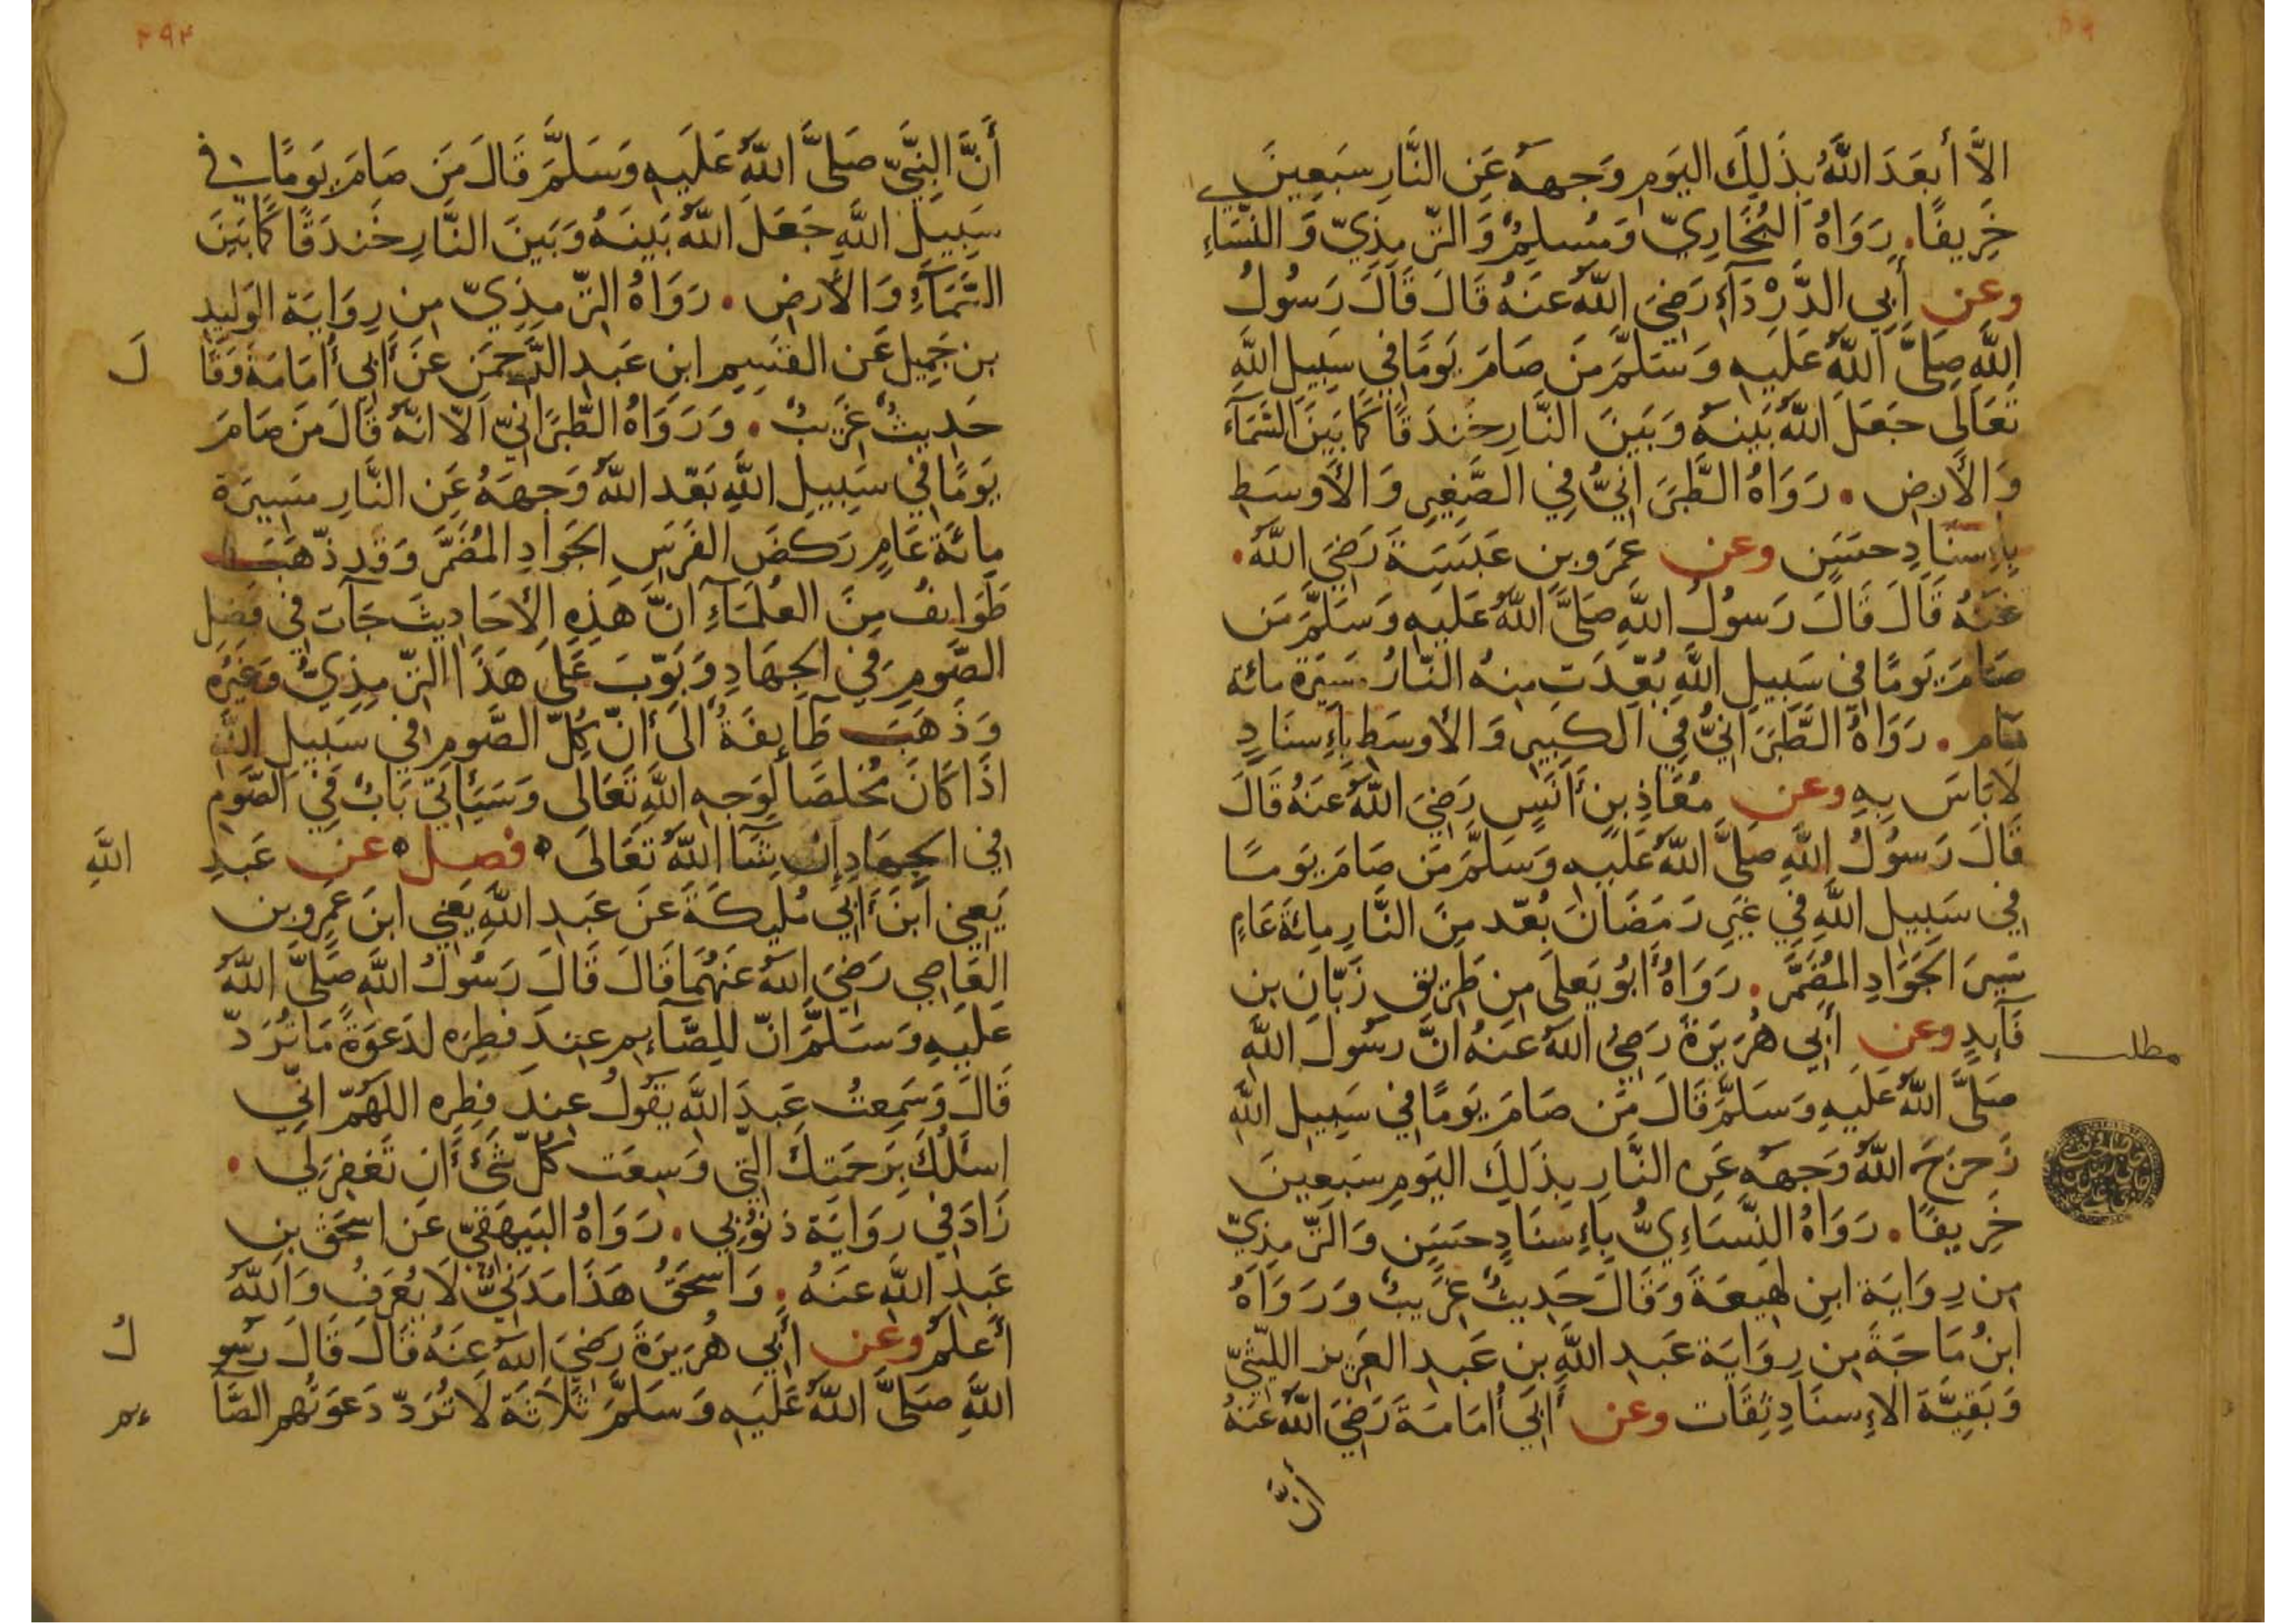 الَّا أَبعَدَ اللَّهُ بِذَلِكَ اليَومِ وَجهَهُ عَنِ النَّارِ سَبعِينَ
خَرِيفًا. رَوَاهُ البُخَارِيّ وَمُسلِمٌ وَالتّرمِذِيّ وَالنَّسَاءِي
وعن أَبِي الدَّرْدَآءِ رَضِيَ اللَّهُ عَنهُ قَالَ قَالَ رَسُولُ
اللَّهِ صَلَّى اللَّهُ عَلَيهِ وَسَلَّمَ مَن صَامَ يَومًا فِي سَبِيلِ اللَّهِ
تَعَالَى جَعَلَ اللَّهُ بَينَهُ وَبَينَ النَّارِ خَندَقًا كَمَا بَينَ السَّمَآءِ
وَالأَرضِ. رَوَاهُ الطَّبَرَانِيُّ فِي الصَّغِيرِ وَالأَوسَطِ
بِإِسنَادٍ حَسَنٍ وعن عَمرِو بنِ عَبَسَةَ رَضِيَ اللَّهُ.
عَنهُ قَالَ قَالَ رَسُولُ اللَّهِ صَلَّى اللَّهُ عَلَيهِ وَسَلَّمَ مَن
صَامَ يَومًا فِي سَبِيلِ اللَّهِ بُعِّدَت مِنهُ النَّارُ مَسِيرَةَ مائة
عَام. رَوَاهُ الطَّبَرَانِيُّ فِي الكَبِيرِ وَالأَوسَطِ بِإِسنَادٍ
لَا بَاسَ بِهِ وعن مُعَاذِ بنِ أَنَسٍ رَضِيَ اللَّهُ عَنهُ قَالَ
قَالَ رَسُولُ اللَّهِ صَلَّى اللَّهُ عَلَيهِ وَسَلَّمَ مَن صَامَ يَومًا
فِي سَبِيلِ اللَّهِ فِي غَيرِ رَمَضَانَ بُعّد مِنَ النَّارِ مِائَةَ عَامٍ
سَيرَ الجَوَادِ المُضَمَّرِ. رَوَاهُ أَبُو يَعلَى مِن طَرِيقِ زَبَّانَ بنِ
فَآئِدٍ وعن أَبِي هُرَيرَةَ رَضِيَ اللَّهُ عَنهُ انَّ رَسُولَ اللَّهِ
مطلب
صَلَّى اللَّهُ عَلَيهِ وَسَلَّمَ قَالَ مَن صَامَ يَومًا فِي سَبِيلِ اللَّهِ
زَحزَحَ اللَّهُ وَجهَهُ عَنِ النَّارِ بِذَلِكَ اليَومِ سَبعِينَ
خَرِيفًا. رَوَاهُ النَّسَاءِيُّ بِإِسنَادٍ حَسَنٍ وَالتّرمِذِيّ
مِن رِوَايَة ابنِ لَهِيعَةَ وَقَالَ حَدِيثٌ غَرِيبٌ وَرَوَاهُ
ابنُ مَاجَةَ مِن رِوَايَة عَبدِ اللَّهِ بنِ عَبدِ العَزِيز اللَّيثيّ
وَبَقِيَّة الإِسنَادِ ثِقَات وعن أَبِي أُمَامَةَ رَضِيَ اللَّهُ عَنهُ
أَنَّ
٢٩٤
أَنَّ النَّبِيَّ صَلَّى اللَّهُ عَلَيهِ وَسَلَّمَ قَالَ مَن صَامَ يَومًا فِي
سَبِيلِ اللَّهِ جَعَلَ اللَّهُ بَينَهُ وَبَينَ النَّارِ خَندَقًا كَمَا بَينَ
السَّمَآءِ وَالأَرضِ. رَوَاهُ التّرمِذِيّ مِن رِوَايَة الوَلِيدِ
بن جَمِيلٍ عَن القَسِمِ ابنِ عَبدِ الرَّحمَنِ عَن أَبِي أُمَامَةَ وَقَا لَ
حَدِيثٌ غَرِيبٌ. وَرَوَاهُ الطَّبَرَانِيّ الَّا انَّهُ قَالَ مَن صَامَ
يَومًا فِي سَبِيلِ اللَّهِ بَعّدَ اللَّهُ وَجهَهُ عَنِ النَّارِ مَسِيرَة
مِائَة عَامٍ رَكضَ الفَرَسِ الجَوَادِ المُضَمَّرِ وَقَد ذّهَبَت
طَوَايفُ مِنَ العُلَمَآءِ انَّ هَذِهِ الأَحَادِيثَ جَآت فِي فَضلِ
الصَّومِ فِي الجِهَادِ وَبَوّبَ عَلَى هَذَا التّرمِذِيُّ وَغَيرُه
وَذَهَبَت طَآيِفَةٌ الَى أَنّ كُلّ الصَّومِ فِي سَبِيلِ اللَّهِ
اذَا كَانَ مُخلَصَا لِوَجهِ اللَّهِ تَعَالَى وَسَيَأتِي بَابٌ فِي الصَّوم
فِي الجِهَادِ إِن شَآ اللَّهُ تَعَالَى ۝ فصل ۝ عن عَبدِ اللَّهِ
يَعنِي ابنَ أَبِي مُلَيكَةَ عَن عَبدِ اللَّهِ يَعنِي ابنَ عَمرِو بن
العَاصِي رَضِيَ اللَّهُ عَنهُمَا قَالَ قَالَ رَسُولُ اللَّهِ صَلَّى اللَّهُ
عَلَيهِ وَسَلَّمَ انّ للصَّآءِمِ عِندَ فِطرِه لدَعوَةً مَا تُرَدّ
قَالَ وَسَمِعتُ عَبدَ اللَّهِ يَقُولُ عِندَ فِطرِه اللَهُمّ انِّي
اسئَلُكَ بِرَحمَتِكَ الَّتِي وَسِعَت كُلّ شَيءٍ أَن تَغفِرَ لِي.
زَادَ فِي رِوَايَة ذنُوبِي. رَوَاهُ البَيهَقِيّ عَن اسحَقَ بنِ
عَبدِ اللَّهِ عَنهُ. وَاسحَقُ هَذَا مَدَنِيٌّ لَا يُعرَفُ وَاللَّهُ
أَعلَمُ وعن أَبِي هُرَيرَةَ رَضِيَ اللَّهُ عَنهُ قَالَ قَالَ رَسُو لُ
اللَّهِ صَلَّى اللَّهُ عَلَيهِ وَسَلَّمَ ثَلَاثَة لَا تُرَدّ دَعوَتُهم الصَّآ ءِم